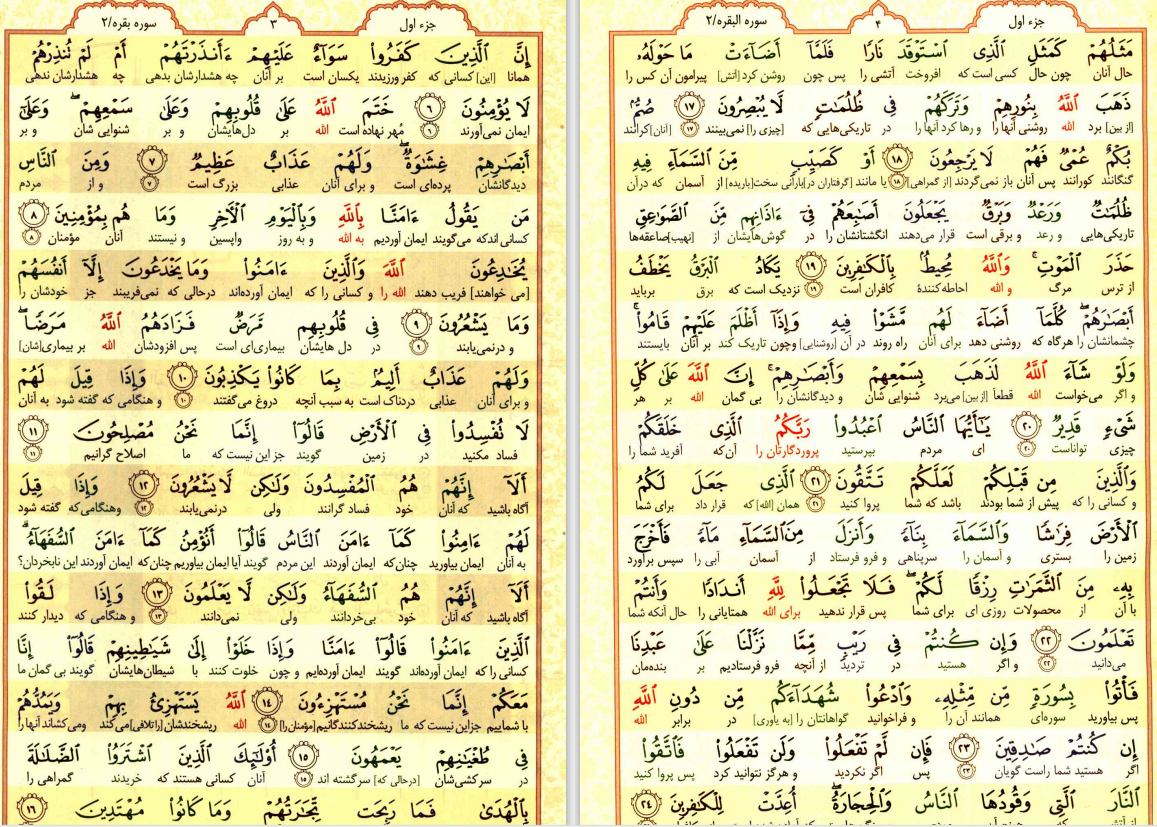 جزء اول
۳
سوره بقره/۲
إِنَّ ٱلَّذِينَ كَفَرُوا۟ سَوَآءٌ عَلَيْهِمْ ءَأَنذَرْتَهُمْ أَمْ لَمْ تُنذِرْهُمْ
همانا [این] کسانی که کفر ورزیدند یکسان است بر آنان چه هشدارشان بدهی چه هشدارشان ندهی
لَا يُؤْمِنُونَ ۶ خَتَمَ ٱللَّهُ عَلَىٰ قُلُوبِهِمْ وَعَلَىٰ سَمْعِهِمْ ۖ وَعَلَىٰٓ
ایمان نمی‌آورند ۶ مُهر نهاده است الله بر دل‌هایشان و بر شنوایی شان و بر
أَبْصَـٰرِهِمْ غِشَـٰوَةٌ ۖ وَلَهُمْ عَذَابٌ عَظِيمٌ ۷ وَمِنَ ٱلنَّاسِ
دیدگانشان پرده‌ای است و برای آنان عذابی بزرگ است ۷ و از مردم
مَن يَقُولُ ءَامَنَّا بِٱللَّهِ وَبِٱلْيَوْمِ ٱلْـَٔاخِرِ وَمَا هُم بِمُؤْمِنِينَ ۸
کسانی اندکه می‌گویند ایمان آوردیم به الله و به روز واپسین و نیستند آنان مؤمنان ۸
يُخَـٰدِعُونَ ٱللَّهَ وَٱلَّذِينَ ءَامَنُوا۟ وَمَا يَخْدَعُونَ إِلَّآ أَنفُسَهُمْ
[می خواهند] فریب دهند الله را و کسانی را که ایمان آورده‌اند درحالی که نمی‌فریبند جز خودشان را
وَمَا يَشْعُرُونَ ۹ فِى قُلُوبِهِم مَّرَضٌ فَزَادَهُمُ ٱللَّهُ مَرَضًا ۖ
و درنمی‌یابند ۹ در دل هایشان بیماری‌ای است پس افزودشان الله بر بیماری[شان]
وَلَهُمْ عَذَابٌ أَلِيمٌۢ بِمَا كَانُوا۟ يَكْذِبُونَ ۱۰ وَإِذَا قِيلَ لَهُمْ
و برای آنان عذابی دردناک است به سبب آنچه دروغ می‌گفتند ۱۰ و هنگامی که گفته شود به آنان
لَا تُفْسِدُوا۟ فِى ٱلْأَرْضِ قَالُوٓا۟ إِنَّمَا نَحْنُ مُصْلِحُونَ ۱۱
فساد مکنید در زمین گویند جز این نیست که ما اصلاح گرانیم ۱۱
أَلَآ إِنَّهُمْ هُمُ ٱلْمُفْسِدُونَ وَلَـٰكِن لَّا يَشْعُرُونَ ۱۲ وَإِذَا قِيلَ
آگاه باشید که آنان خود فساد گرانند ولی درنمی‌یابند ۱۲ وهنگامی‌که گفته شود
لَهُمْ ءَامِنُوا۟ كَمَآ ءَامَنَ ٱلنَّاسُ قَالُوٓا۟ أَنُؤْمِنُ كَمَآ ءَامَنَ ٱلسُّفَهَآءُ ۗ
به آنان ایمان بیاورید چنان‌که ایمان آوردند این مردم گویند آیا ایمان بیاوریم چنان‌که ایمان آوردند این نابخردان؟
أَلَآ إِنَّهُمْ هُمُ ٱلسُّفَهَآءُ وَلَـٰكِن لَّا يَعْلَمُونَ ۱۳ وَإِذَا لَقُوا۟
آگاه باشید که آنان خود بی‌خردانند ولی نمی‌دانند ۱۳ و هنگامی که دیدار کنند
ٱلَّذِينَ ءَامَنُوا۟ قَالُوٓا۟ ءَامَنَّا وَإِذَا خَلَوْا۟ إِلَىٰ شَيَـٰطِينِهِمْ قَالُوٓا۟ إِنَّا
کسانی را که ایمان آورده‌اند گویند ایمان آورده‌ایم و چون خلوت کنند با شیطان‌هایشان گویند بی گمان ما
مَعَكُمْ إِنَّمَا نَحْنُ مُسْتَهْزِءُونَ ۱۴ ٱللَّهُ يَسْتَهْزِئُ بِهِمْ وَيَمُدُّهُمْ
با شماییم جزاین نیست که ما ریشخندکنندگانیم[مؤمنان را] ۱۴ الله ریشخندشان[راتلافی]می‌کند ومی‌کشاند آنها را
فِى طُغْيَـٰنِهِمْ يَعْمَهُونَ ۱۵ أُو۟لَـٰٓئِكَ ٱلَّذِينَ ٱشْتَرَوُا۟ ٱلضَّلَـٰلَةَ
در سرکشی‌شان [درحالی که] سرگشته اند ۱۵ آنان کسانی هستند که خریدند گمراهی را
بِٱلْهُدَىٰ فَمَا رَبِحَت تِّجَـٰرَتُهُمْ وَمَا كَانُوا۟ مُهْتَدِينَ ۱۶
جزء اول
۴
سوره البقره/۲
مَثَلُهُمْ كَمَثَلِ ٱلَّذِى ٱسْتَوْقَدَ نَارًا فَلَمَّآ أَضَآءَتْ مَا حَوْلَهُۥ
حال آنان چون حال کسی است که افروخت آتشی را پس چون روشن کرد [آتش] پیرامون آن کس را
ذَهَبَ ٱللَّهُ بِنُورِهِمْ وَتَرَكَهُمْ فِى ظُلُمَـٰتٍ لَّا يُبْصِرُونَ ۱۷ صُمٌّۢ
[از بین] برد الله روشنی آنها را و رها کرد آنها را در تاریکی‌هایی که [چیزی را] نمی‌بینند ۱۷ [آنان] کرانند
بُكْمٌ عُمْىٌ فَهُمْ لَا يَرْجِعُونَ ۱۸ أَوْ كَصَيِّبٍ مِّنَ ٱلسَّمَآءِ فِيهِ
گنگانند کورانند پس آنان باز نمی‌گردند [از گمراهی] ۱۸ یا مانند [گرفتاران در] بارانی سخت[باریده] از آسمان که درآن
ظُلُمَـٰتٌ وَرَعْدٌ وَبَرْقٌ يَجْعَلُونَ أَصَـٰبِعَهُمْ فِىٓ ءَاذَانِهِم مِّنَ ٱلصَّوَٰعِقِ
تاریکی‌هایی و رعد و برقی است قرار می‌دهند انگشتانشان را در گوش‌هایشان از [نهیب]صاعقه‌ها
حَذَرَ ٱلْمَوْتِ ۚ وَٱللَّهُ مُحِيطٌۢ بِٱلْكَـٰفِرِينَ ۱۹ يَكَادُ ٱلْبَرْقُ يَخْطَفُ
از ترس مرگ و الله احاطه‌کنندهٔ کافران است ۱۹ نزدیک است که برق برباید
أَبْصَـٰرَهُمْ ۖ كُلَّمَآ أَضَآءَ لَهُم مَّشَوْا۟ فِيهِ وَإِذَآ أَظْلَمَ عَلَيْهِمْ قَامُوا۟ ۚ
چشمانشان را هرگاه که روشنی دهد برای آنان راه روند در آن [روشنایی] وچون تاریک کند بر آنان بایستند
وَلَوْ شَآءَ ٱللَّهُ لَذَهَبَ بِسَمْعِهِمْ وَأَبْصَـٰرِهِمْ ۚ إِنَّ ٱللَّهَ عَلَىٰ كُلِّ
و اگر می‌خواست الله قطعاً [از بین] می‌برد شنوایی شان و دیدگانشان را بی گمان الله بر هر
شَىْءٍ قَدِيرٌ ۲۰ يَـٰٓأَيُّهَا ٱلنَّاسُ ٱعْبُدُوا۟ رَبَّكُمُ ٱلَّذِى خَلَقَكُمْ
چیزی تواناست ۲۰ ای مردم بپرستید پروردگارتان را آن‌که آفرید شما را
وَٱلَّذِينَ مِن قَبْلِكُمْ لَعَلَّكُمْ تَتَّقُونَ ۲۱ ٱلَّذِى جَعَلَ لَكُمُ
و کسانی را که پیش از شما بودند باشد که شما پروا کنید ۲۱ همان [الله] که قرار داد برای شما
ٱلْأَرْضَ فِرَٰشًا وَٱلسَّمَآءَ بِنَآءً وَأَنزَلَ مِنَ ٱلسَّمَآءِ مَآءً فَأَخْرَجَ
زمین را بستری و آسمان را سرپناهی و فرو فرستاد از آسمان آبی را سپس برآورد
بِهِۦ مِنَ ٱلثَّمَرَٰتِ رِزْقًا لَّكُمْ ۖ فَلَا تَجْعَلُوا۟ لِلَّهِ أَندَادًا وَأَنتُمْ
با آن از محصولات روزی ای برای شما پس قرار ندهید برای الله همتایانی را حال آنکه شما
تَعْلَمُونَ ۲۲ وَإِن كُنتُمْ فِى رَيْبٍ مِّمَّا نَزَّلْنَا عَلَىٰ عَبْدِنَا
می‌دانید ۲۲ و اگر هستید در تردید از آنچه فرو فرستادیم بر بنده‌مان
فَأْتُوا۟ بِسُورَةٍ مِّن مِّثْلِهِۦ وَٱدْعُوا۟ شُهَدَآءَكُم مِّن دُونِ ٱللَّهِ
پس بیاورید سوره‌ای همانند آن را و فراخوانید گواهانتان را [به یاوری] در برابر الله
إِن كُنتُمْ صَـٰدِقِينَ ۲۳ فَإِن لَّمْ تَفْعَلُوا۟ وَلَن تَفْعَلُوا۟ فَٱتَّقُوا۟
اگر هستید شما راست گویان ۲۳ پس اگر نکردید و هرگز نتوانید کرد پس پروا کنید
ٱلنَّارَ ٱلَّتِى وَقُودُهَا ٱلنَّاسُ وَٱلْحِجَارَةُ ۖ أُعِدَّتْ لِلْكَـٰفِرِينَ ۲۴